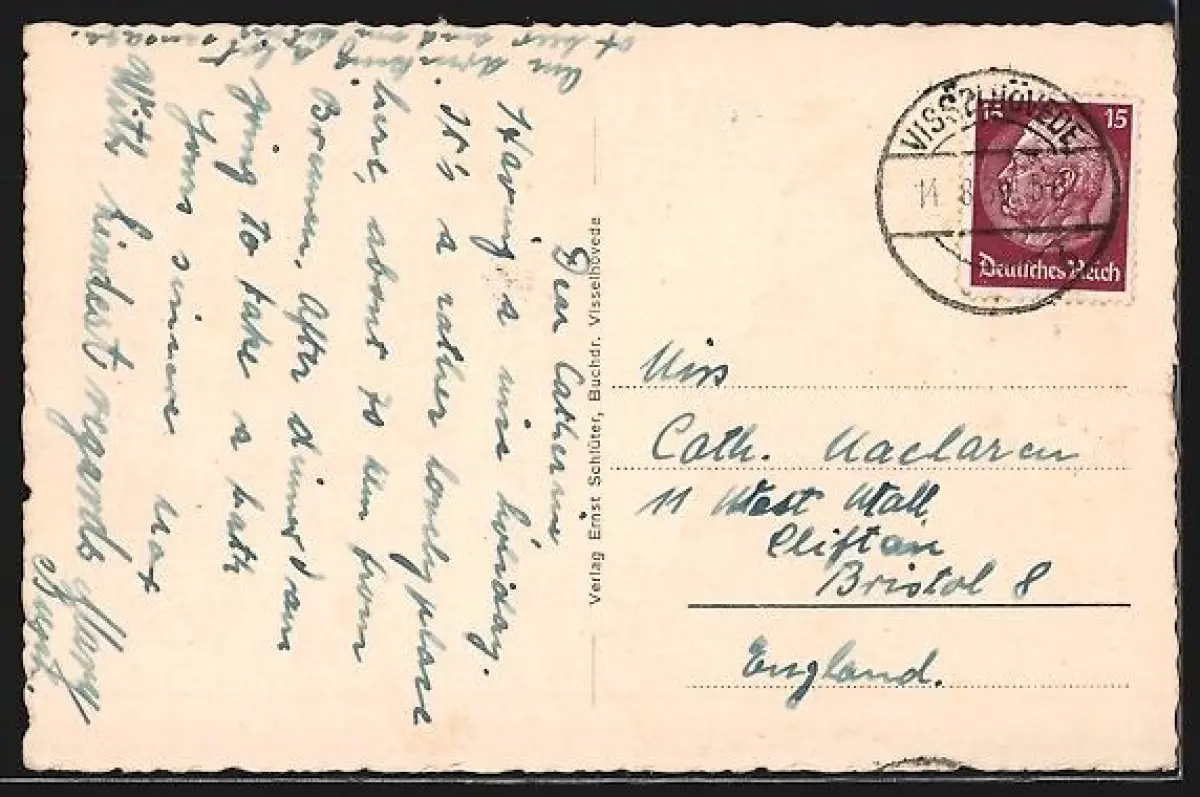 Dear Catherine
Having a nice holiday.
It's a rather lonely place
here, about 30 klm from
Bremen. After dinner I am
going to take a bath
Yours sincere Max
With kindest regards Mary
Verlag Ernst Schlüter, Buchdr. Visselhövede
VISSELHÖVEDE
14. 8.
15 15
Deutsches Reich
Miss
Cath. Maclaren
11 West Mall
Clifton
Bristol 8
England.